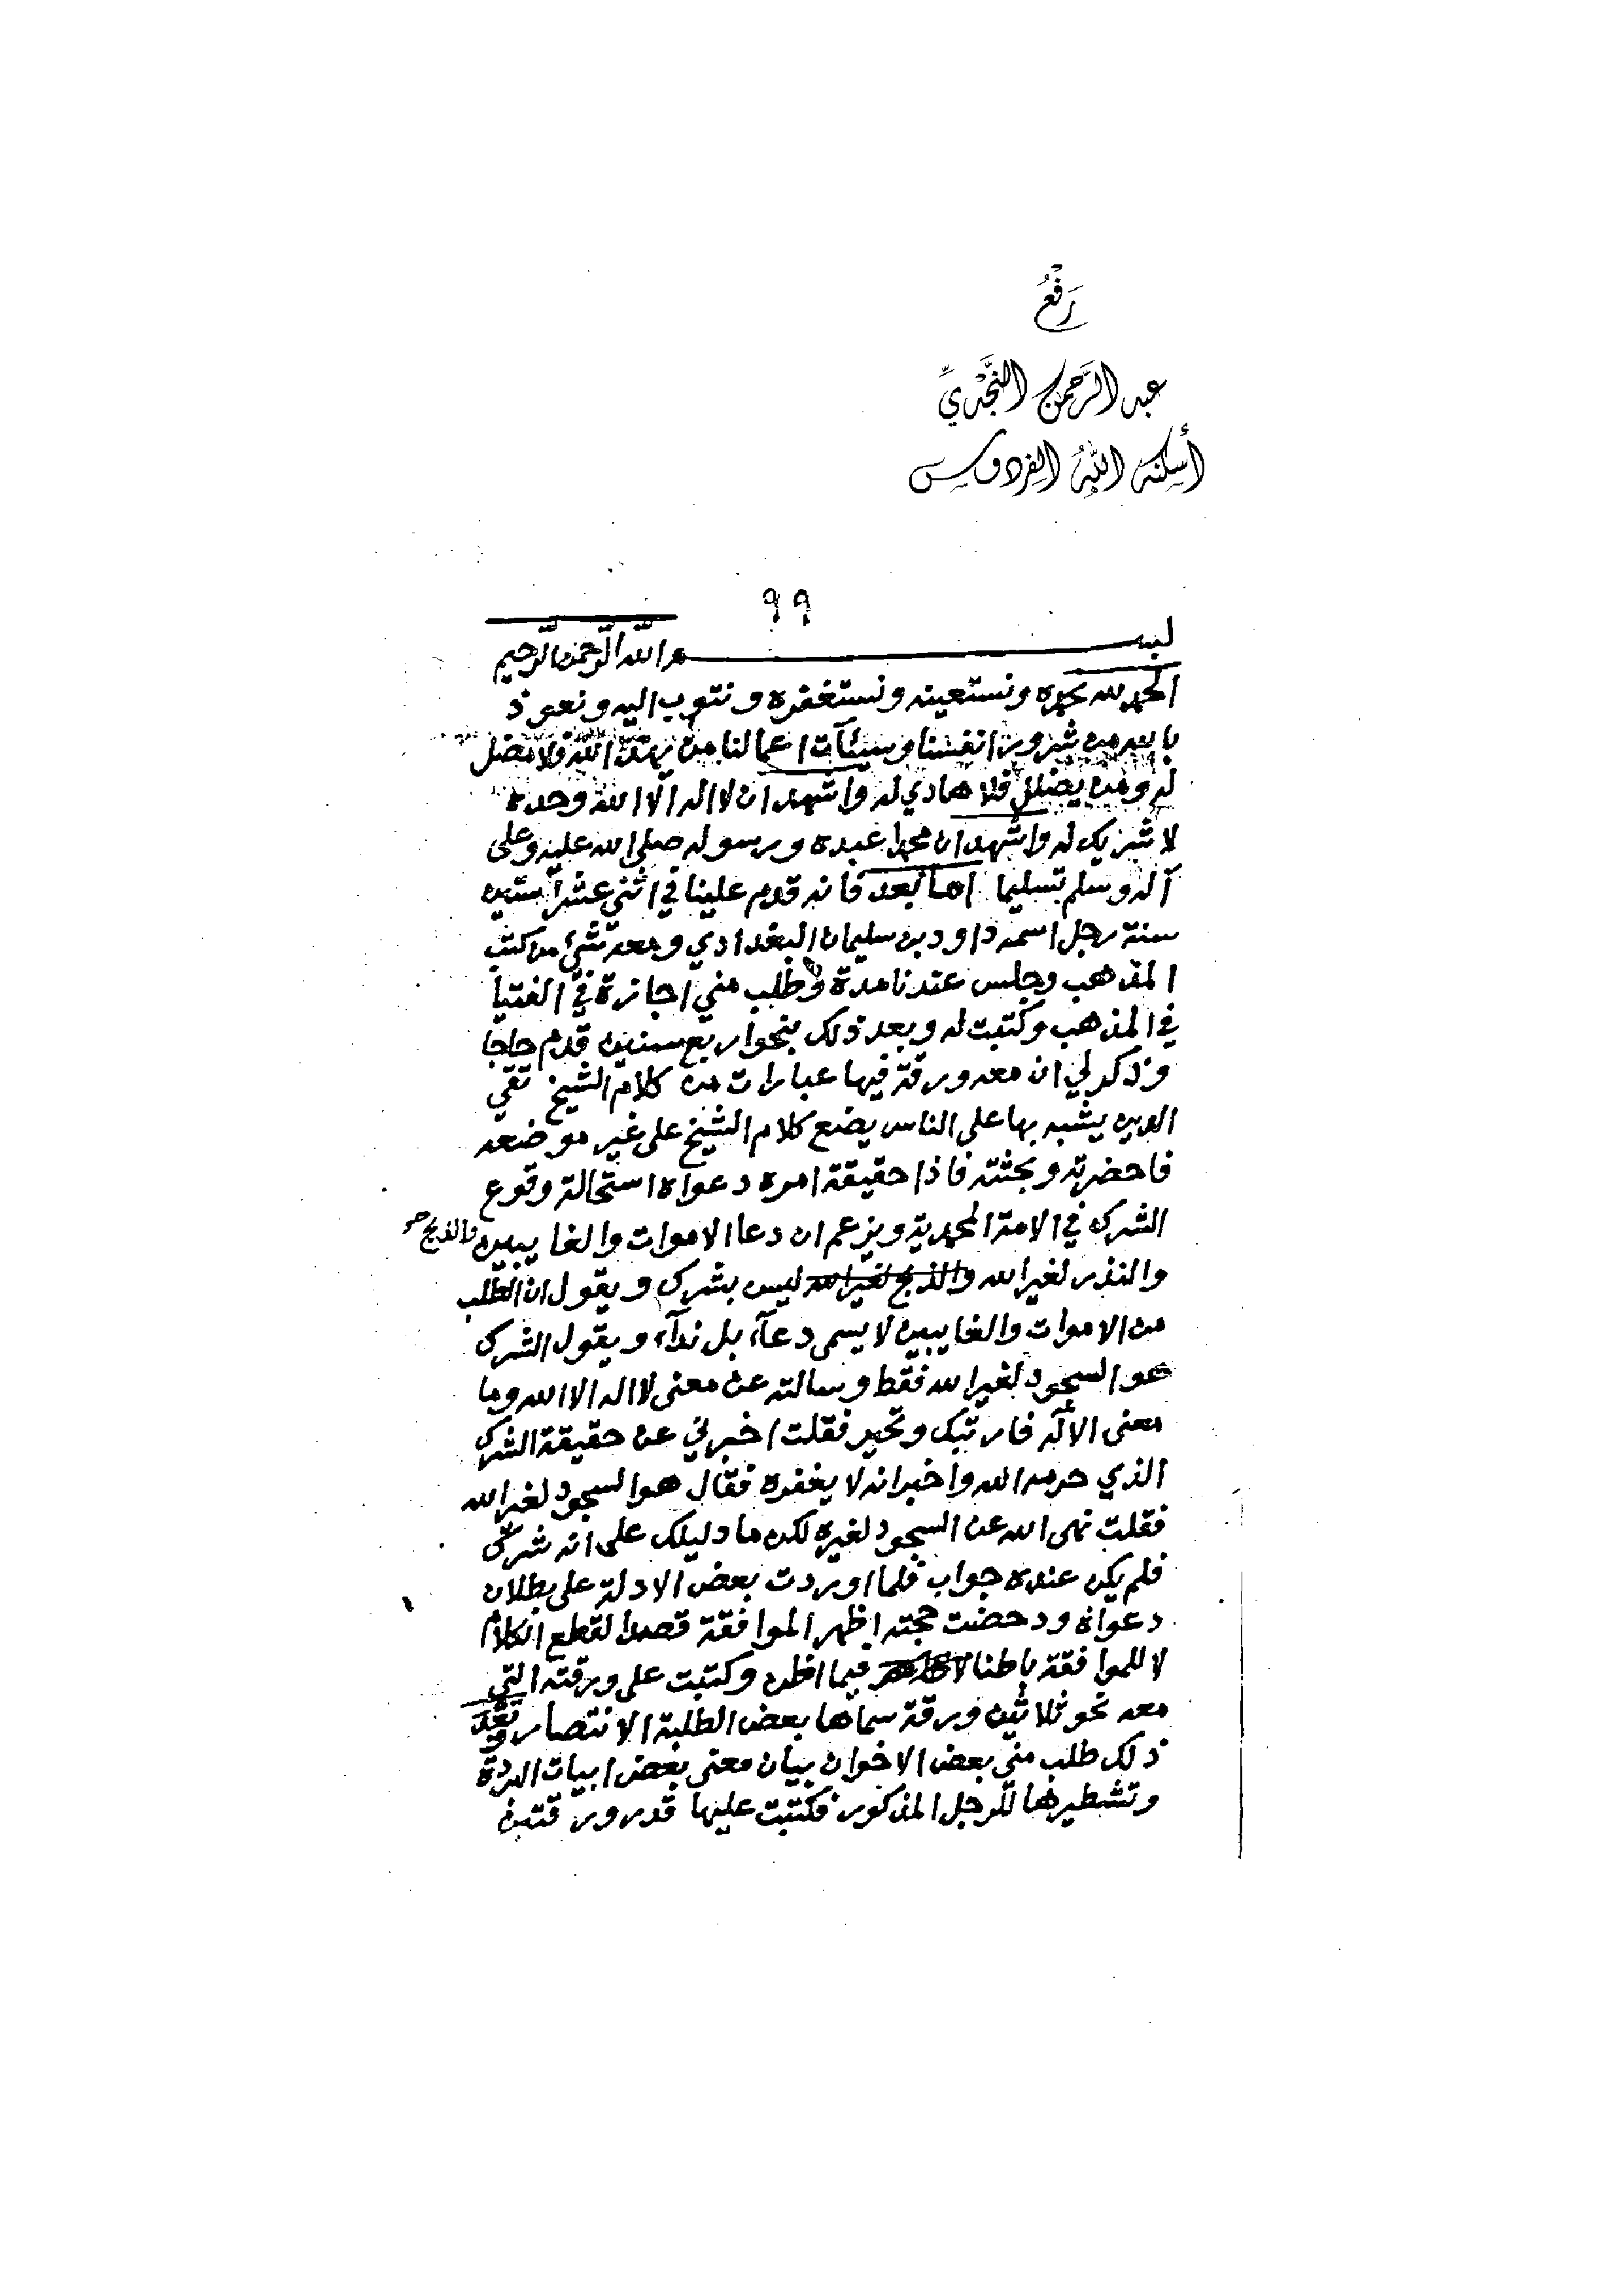 رَفْعُ
عبد الرَّحمن النَّجْدِيِّ
أسكنه اللهُ الفردوس
٩٩
بسم الله الرّحمن الرّحيم
الحمد لله نحمده ونستعينه ونستغفره ونتوب اليه ونعوذ
بالله من شرور انفسنا وسيئآت اعمالنا من يهد الله فلا مضل
له ومن يضلل فلا هادي له واشهد ان لا اله الا الله وحده
لا شريك له واشهد ان محمدا عبده ورسوله صلى الله عليه وعلى
آله وسلم تسليما اما بعد فانه قدم علينا في اثني عشر ستين
سنة رجل اسمه داود بن سليمان البغدادي ومعه شئ من كتب
المذهب وجلس عندنا مدة وطلب مني اجازة في الفتيا
في المذهب وكتبت له وبعد ذلك بنحو اربع سنين قدم حاجا
وذكر لي ان معه ورقة فيها عبارات من كلام الشيخ تقي
الدين يشبه بها على الناس يضع كلام الشيخ على غير موضعه
فاحضرته وبحثته فاذا حقيقة امره دعواه استحالة وقوع
الشرك في الامة المحمدية ويزعم ان دعا الاموات والغايبين والذبح
والنذر لغير الله والذبح لغير الله ليس بشرك ويقول ان الطلب
من الاموات والغايبين لا يسمى دعآء بل ندآء ويقول الشرك
هو السجود لغير الله فقط وسالته عن معنى لا اله الا الله وما
معنى الاله فارتبك وتحير فقلت اخبرني عن حقيقة الشرك
الذي حرمه الله واخبر انه لا يغفره فقال هو السجود لغير الله
فقلت نهى الله عن السجود لغيره لكن ما دليلك على انه شرك
فلم يكن عنده جواب فلما اوردت بعض الادلة على بطلان
دعواه ودحضت حجته اظهر الموافقة قصدا لقطع الكلام
لا للموافقة باطنا فيما اظن وكتبت على ورقته التي
معه نحو ثلاثين ورقة سماها بعض الطلبة الانتصار وبعد
ذلك طلب مني بعض الاخوان بيان معنى بعض ابيات البردة
وتشطيرها للرجل المذكور فكتبت عليها قدر ورقتين